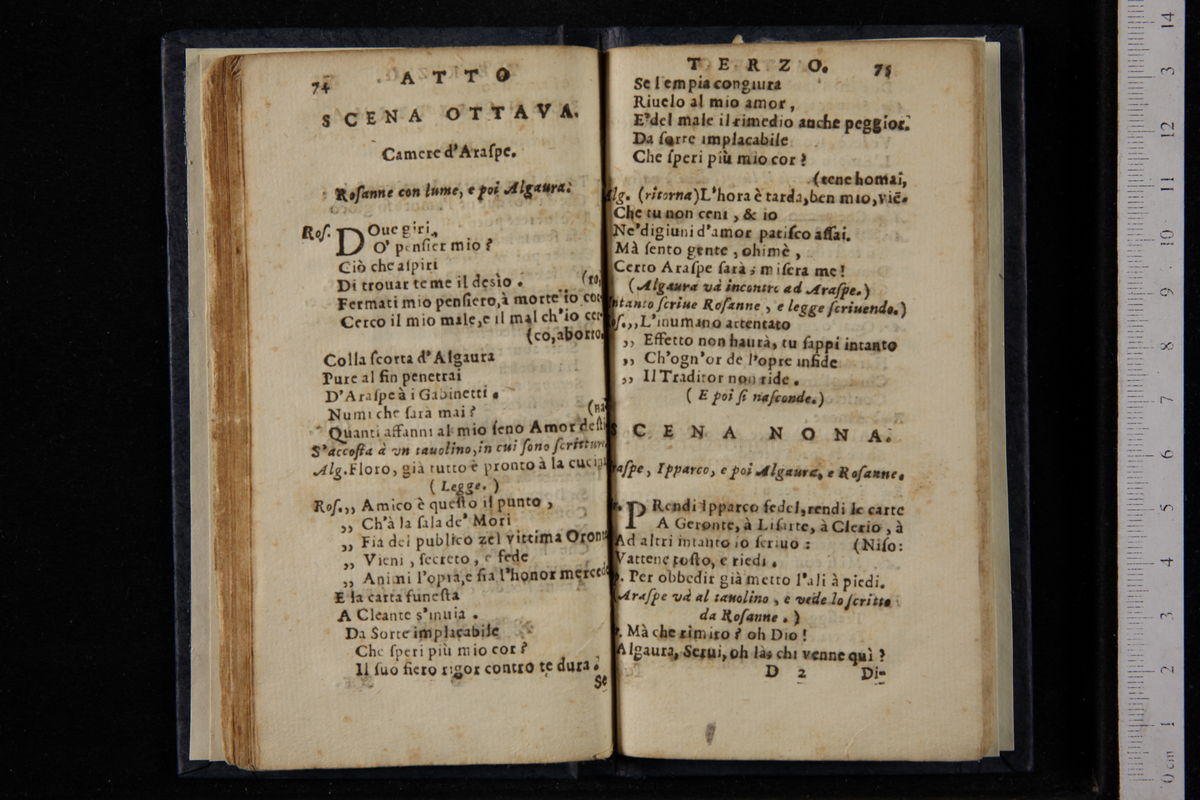 74 ATTO
SCENA OTTAVA.
Camere d'Araſpe.
Roſanne con lume, e poi Algaura.
Roſ. Doue giri,
O' penſier mio?
Ciò che aſpiri
Di trouar teme il desìo. (ro,
Fermati mio penſiero, à morte io cor-
Cerco il mio male, e il mal ch'io cer-
(co, aborro.
Colla ſcorta d'Algaura
Pure al fin penetrai
D'Araſpe à i Gabinetti.
Numi che ſarà mai? (na
Quanti affanni al mio ſeno Amor deſti
S'accoſta à vn tauolino, in cui ſono ſcritture
Alg. Floro, già tutto è pronto à la cucina
(Legge.)
Roſ. ,, Amico è queſto il punto,
,, Ch'à la ſala de' Mori
,, Fia del publico zel vittima Oronta
,, Vieni, ſecreto, e fede
,, Animi l'opra, e ſia l'honor mercede
E la carta funeſta
A Cleante s'inuia.
Da Sorte implacabile
Che ſperi più mio cor?
Il ſuo fiero rigor contro te dura.
Se
TERZO. 75
Se l'empia congiura
Riuelo al mio amor,
E' del male il rimedio anche peggior.
Da ſorte implacabile
Che ſperi più mio cor?
(tene homai,
Alg. (ritorna) L'hora è tarda, ben mio, viē-
Che tu non ceni, & io
Ne' digiuni d'amor patiſco aſſai.
Mà ſento gente, ohimè,
Certo Araſpe ſarà; miſera me!
(Algaura và incontro ad Araſpe.)
Intanto ſcriue Roſanne, e legge ſcriuendo.)
Roſ. ,, L'inumano attentato
,, Effetto non haurà, tu ſappi intanto
,, Ch'ogn'or de l'opre infide
,, Il Traditor non ride.
(E poi ſi naſconde.)
SCENA NONA.
Araſpe, Ipparco, e poi Algaura, e Roſanne.
PRendi Ipparco fedel, rendi le carte
A Geronte, à Liſarte, à Clerio, à
Ad altri intanto io ſcriuo: (Niſo:
Vattene toſto, e riedi.
Per obbedir già metto l'ali à piedi.
(Araſpe và al tauolino, e vede lo ſcritto
da Roſanne.)
Mà che rimiro? oh Dio!
Algaura, Serui, oh là, chi venne quì?
D 2 Di-